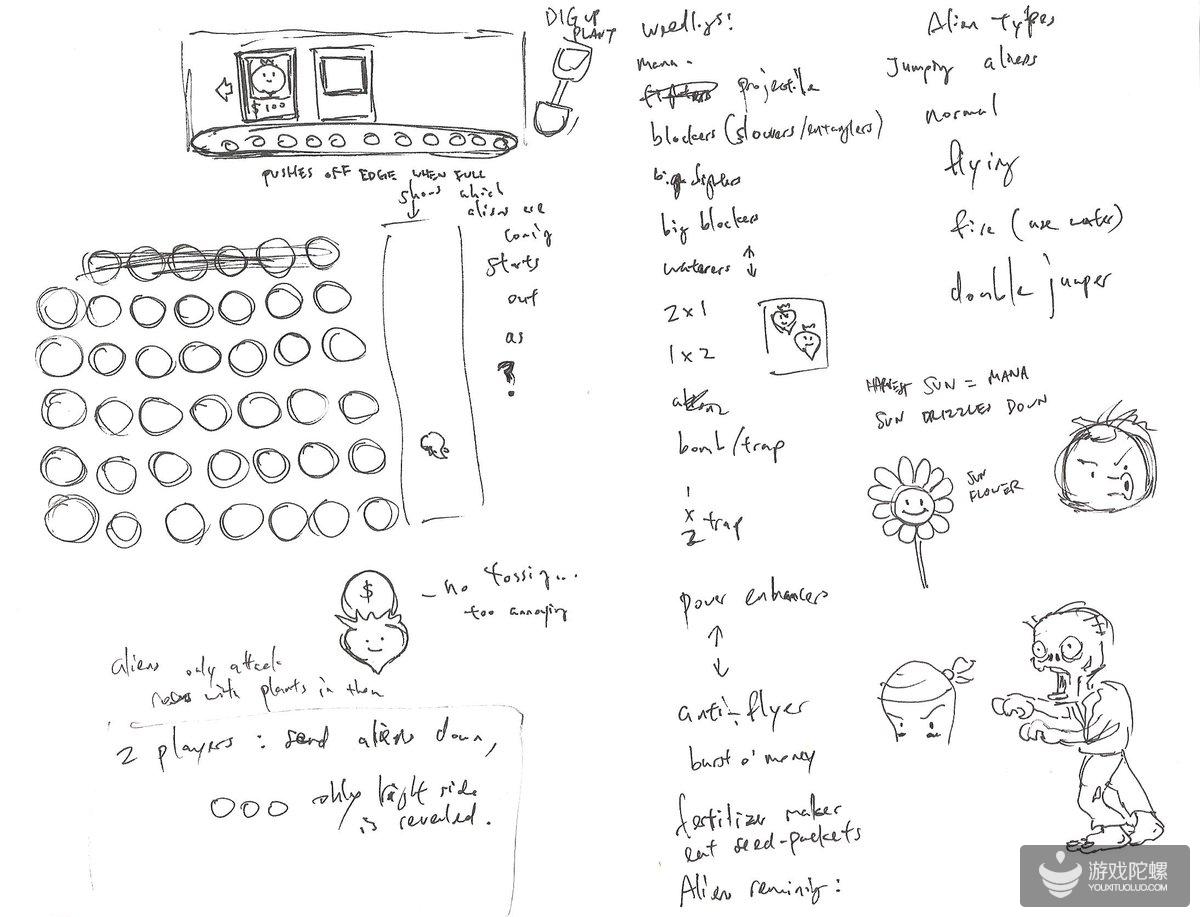 DIG UP
PLANT
$100
PUSHES OFF EDGE WHEN FULL
shows which
aliens are
coming
starts
out
as
?
$
- no tossing...
too annoying
aliens only attack
rows with plants in them
2 players: send aliens down,
only right side
is revealed.
weedlings!
mana -
projectile
blockers (slowers/entanglers)
big fighters
big blockers
waterers
2x1
1x2
bomb/trap
1
x
2 trap
power enhancers
anti-flyer
burst o' money
fertilizer maker
eat seed-packets
Alien
Alien types
Jumping aliens
normal
flying
fire (use water)
double jumper
HARVEST SUN = MANA
SUN DRIZZLES DOWN
SUN
FLOWER
游戏陀螺
YOUXITUOLUO.COM